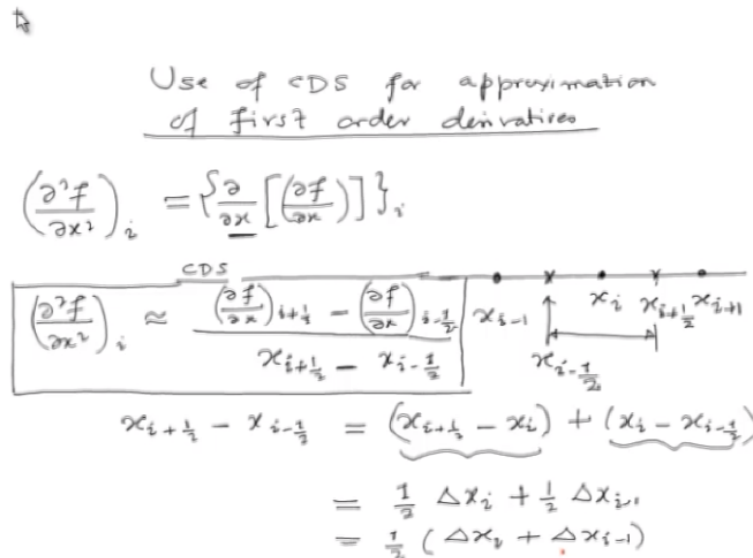 Use of CDS for approximation
of first order derivatives
(∂²f/∂x²)_i = {∂/∂x [(∂f/∂x)]}_i
CDS
(∂²f/∂x²)_i ≈ ((∂f/∂x)_{i+1/2} − (∂f/∂x)_{i−1/2}) / (x_{i+1/2} − x_{i−1/2})
x_{i−1} x_i x_{i+1/2} x_{i+1}
x_{i−1/2}
x_{i+1/2} − x_{i−1/2} = (x_{i+1/2} − x_i) + (x_i − x_{i−1/2})
= 1/2 Δx_i + 1/2 Δx_{i-1}
= 1/2 (Δx_i + Δx_{i−1})